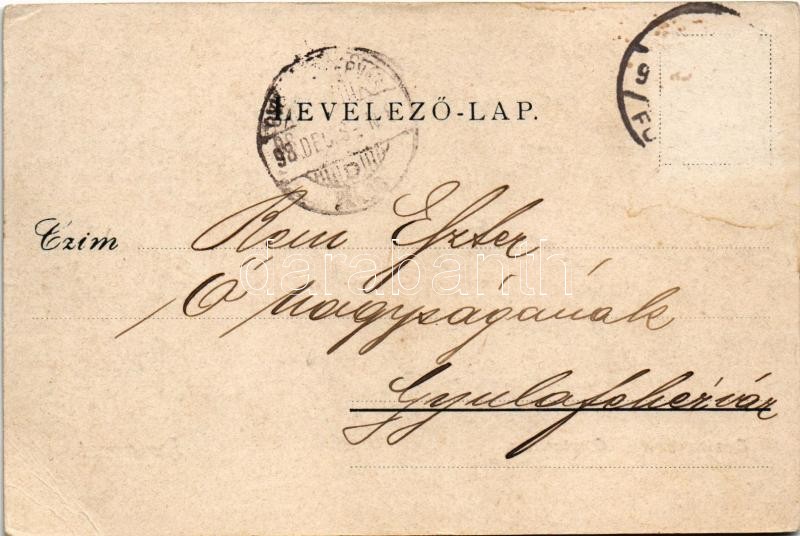 LEVELEZŐ-LAP.
98 DEC.
Czim
Eszter
Ő nagyságának
Gyulafehérvár
darabanth